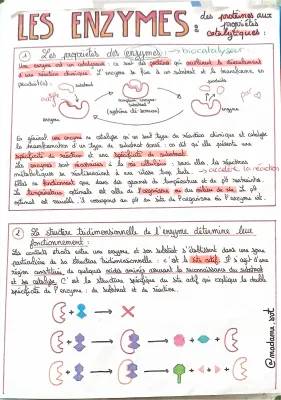 LES ENZYMES : des protéines aux
propriétés
catalytiques :
1 Les propriétés des enzymes : → biocatalyseur
Une enzyme est un catalyseur : ce sont des protéines qui accélèrent le déroulement
d'une réaction chimique. L'enzyme se fixe à un substrat et le transforme en
produit(s) :
substrat
enzyme
complexe enzyme
substrat
produits
enzyme
En général une enzyme ne catalyse qu'un seul type de réaction chimique et catalyse
la transformation d'un type de substrat donné : on dit qu'elle présente une
spécificité de réaction et une spécificité de substrat.
Les enzymes sont nécessaires à la vie cellulaire : sans elles, les réactions
métaboliques se réaliseraient à une vitesse trop lente. → accélère la réaction
Elles ne fonctionnent que dans des gammes de températures et de pH restreintes.
La température optimale est celle de l'organisme ou du milieu de vie. Le pH
optimal est variable. Il correspond au pH du site de l'organisme où l'enzyme est.
2 La structure tridimensionnelle de l'enzyme détermine leur
fonctionnement :
Les contacts étroits entre une enzyme et son substrat s'établissent dans une zone
particulière de sa structure tridimensionnelle : c'est le site actif. Il s'agit d'une
région constituée de quelques acides aminés assurant la reconnaissance du substrat
et sa catalyse. C'est la structure spécifique du site actif qui explique la double
spécificité de l'enzyme : de substrat et de réaction.
@madame.svt